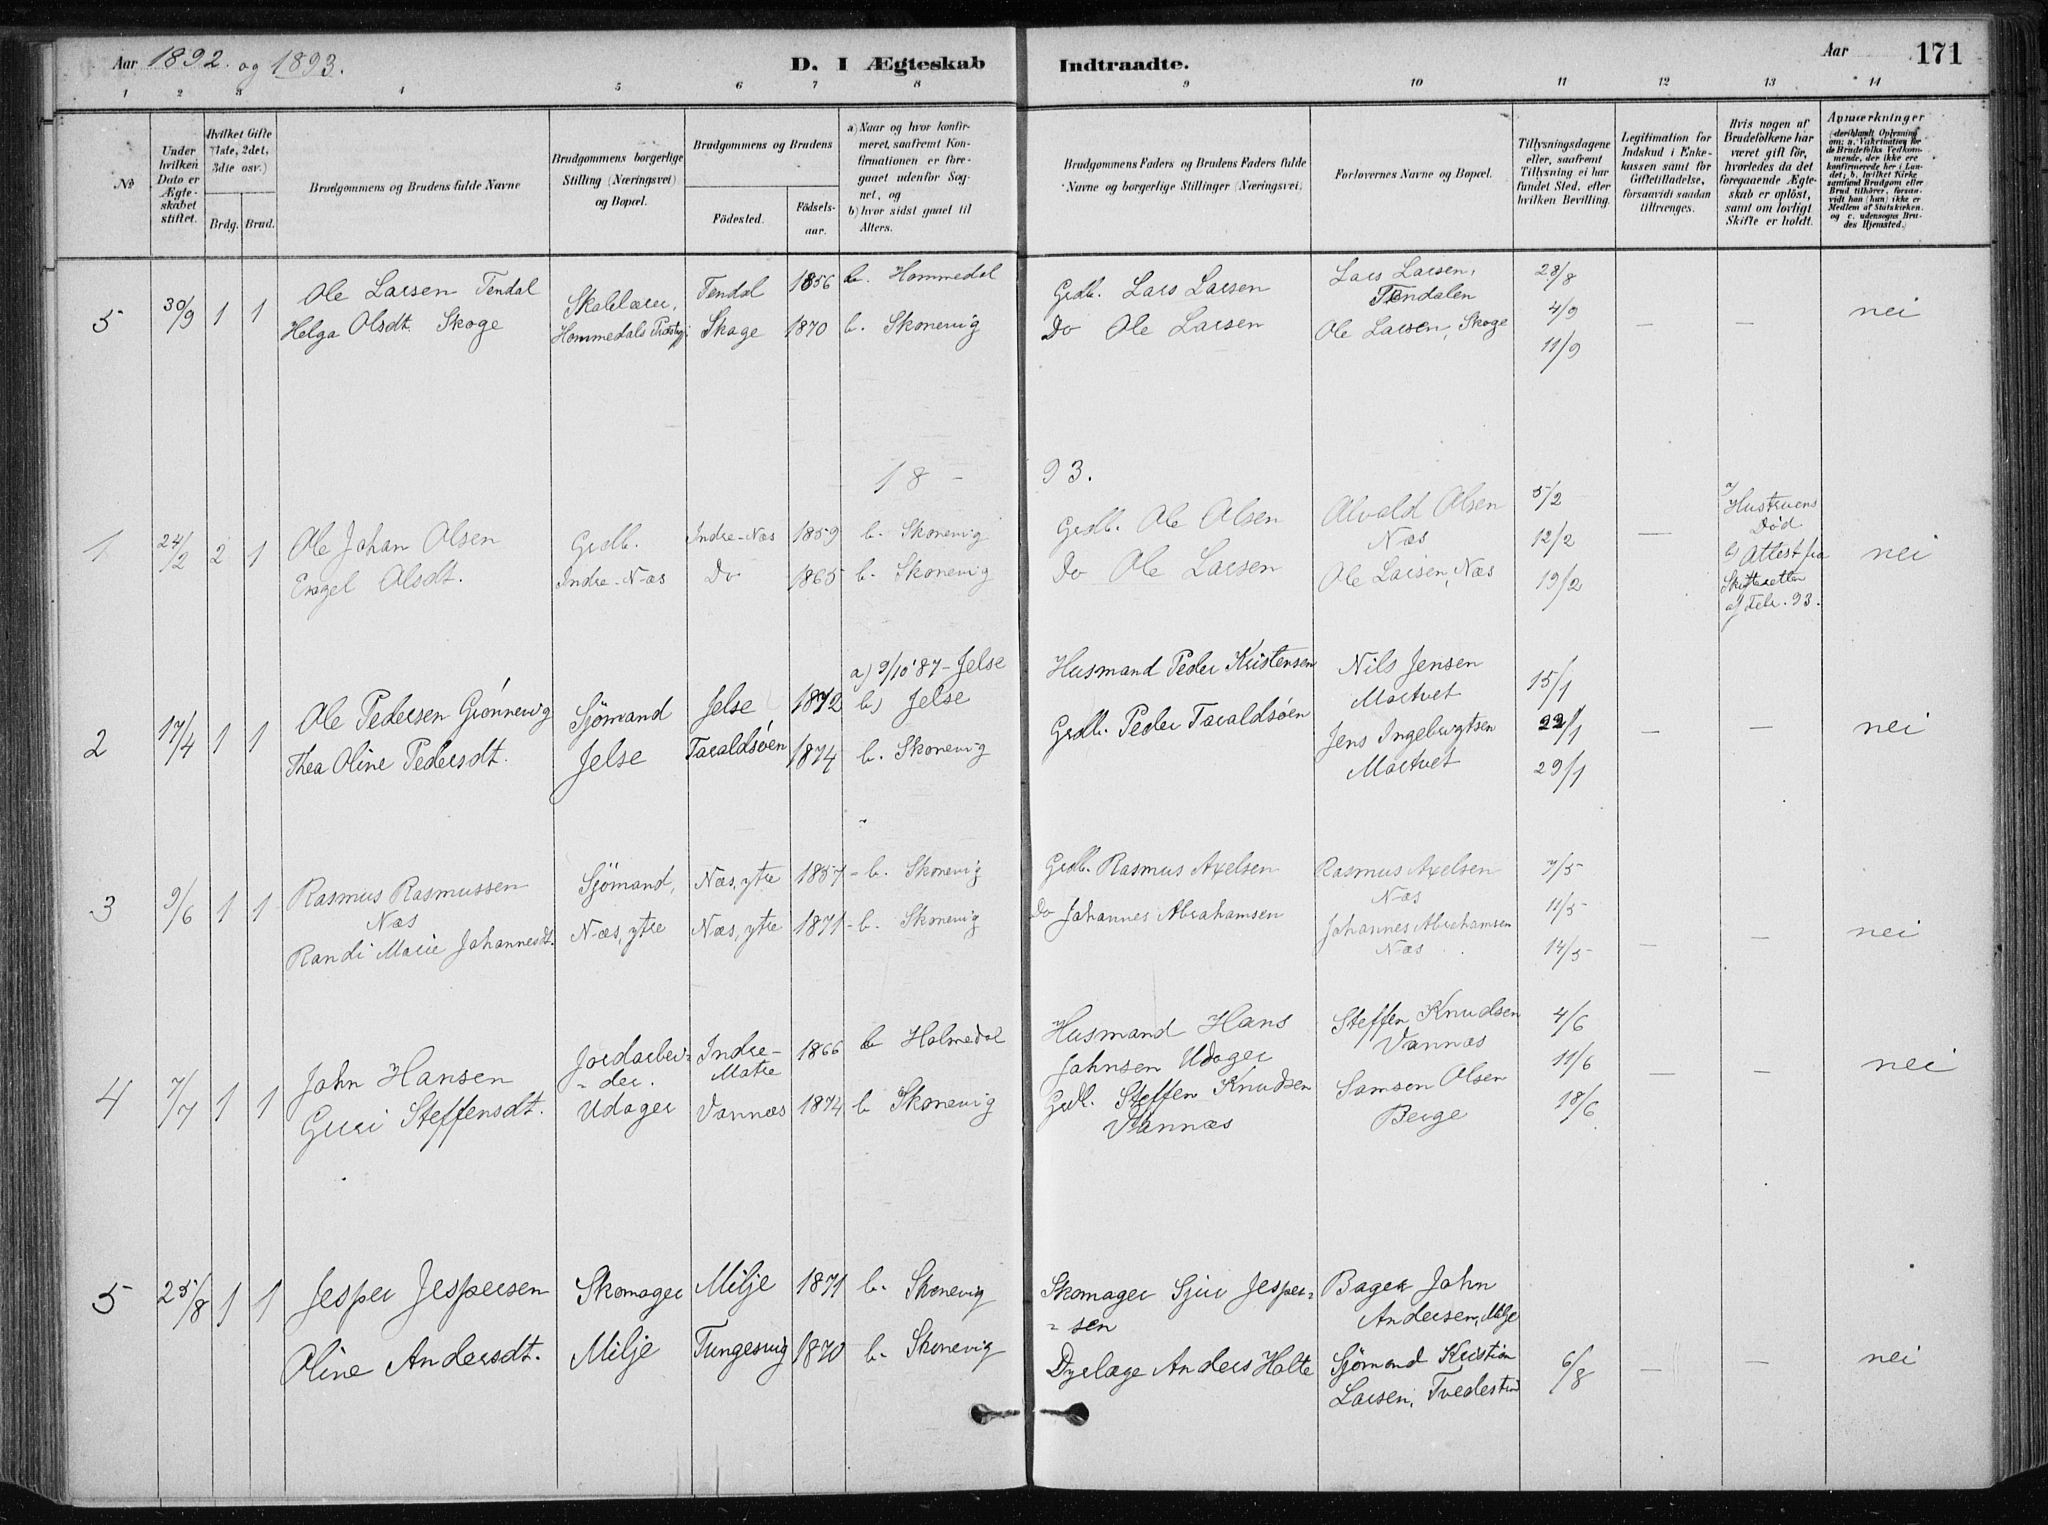 Aar 1892 og 1893.
D. I Ægteskab Indtraadte.
Aar 171
1 2 3 4 5 6 7 8 9 10 11 12 13 14
No
Under hvilken Dato er Ægteskabet stiftet.
Hvilket Gifte (1ste, 2det, 3die osv.)
Brdg. Brud.
Brudgommens og Brudens fulde Navne
Brudgommens borgerlige Stilling (Næringsvei) og Bopæl.
Brudgommens og Brudens
Födested.
Födselsaar.
a) Naar og hvor konfirmeret, saafremt Konfirmationen er foregaaet udenfor Sognet, og
b) hvor sidst gaaet til Alters.
Brudgommens Faders og Brudens Faders fulde Navne og borgerlige Stillinger (Næringsvei).
Forlovernes Navne og Bopæl.
Tillysningsdagene eller, saafremt Tillysning ei har fundet Sted, efter hvilken Bevilling.
Legitimation for Indskud i Enkekassen samt for Giftetilladelse, forsaavidt saadan tiltrænges.
Hvis nogen af Brudefolkene har været gift för, hvorledes da det foregaaende Ægteskab er oplöst, samt om lovligt Skifte er holdt.
Anmærkninger
(deriblandt Oplysning om: a. Vakcination for de Brudefolks Vedkommende, der ikke ere konfirmerede her i Landet; b. hvilket Kirkesamfund Brudgom eller Brud tilhörer, forsaavidt han (hun) ikke er Medlem af Statskirken, og c. udensogns Brudes Hjemsted.)
5 30/9 1 1
Ole Larsen Tendal
Helga Olsdt. Skoge
Skolelærer,
Hommedals
Tendal 1856 b. Hommedal
Skoge 1870 b. Skonevig
Grdb. Lars Larsen
Do Ole Larsen
Lars Larsen,
Tendalen
Ole Larsen, Skoge
28/8
4/9
11/9
— — nei
18 - 93.
1 24/2 2 1
Ole Johan Olsen
Engel Olsdt.
Grdb.
Indre-Næs
Indre-Næs 1859 b. Skonevig
Do 1865 b. Skonevig
Grdb. Ole Olsen
Do Ole Larsen
Alvald Olsen
Næs
Ole Larsen, Næs
5/2
12/2
19/2
—
a) Hustruens
Död
b) Attest fra
Skifteretten
af Febr. 93.
nei
2 17/4 1 1
Ole Pedersen Grönnevig
Thea Oline Pedersdt.
Sjömand
Jelse
Jelse 1872
Taraldsöen 1874
a) 9/10 87 - Jelse
b) Jelse
b. Skonevig
Husmand Peder Kristensen
Grdb. Peder Taraldsöen
Nils Jensen
Mortvet
Jens Ingebrigtsen
Mortvet
15/1
22/1
29/1
— — nei
3 9/6 1 1
Rasmus Rasmussen
Næs
Randi Marie Johannesdt.
Sjömand,
Næs, ytre
Næs, ytre 1857 - b. Skonevig
Næs, ytre 1871 - b. Skonevig
Grdb. Rasmus Axelsen
Do Johannes Abrahamsen
Rasmus Axelsen
Næs
Johannes Abrahamsen
Næs
7/5
11/5
14/5
— — nei
4 7/7 1 1
John Hansen
Guri Steffensdt.
Jordarbei-
- der.
Udager
Indre-
Matre
1866 b Holmedal
Vannæs 1874 b Skonevig
Husmand Hans
Johnsen Udager
Grdb. Steffen Knudsen
Vannæs
Steffen Knudsen
Vannæs
Samson Olsen
Berge
4/6
11/6
18/6
— — nei
5 25/8 1 1
Jesper Jespersen
Oline Andersdt.
Skomager
Milje
Milje 1871 b. Skonevig
Tungesvig 1870 b. Skonevig
Skomager Sjur Jesper-
- sen
Dyrlæge Anders Holte
Bager John
Andersen, Milje
Sjömand Kristian
Larsen, Tvedestrand
6/8
— — nei